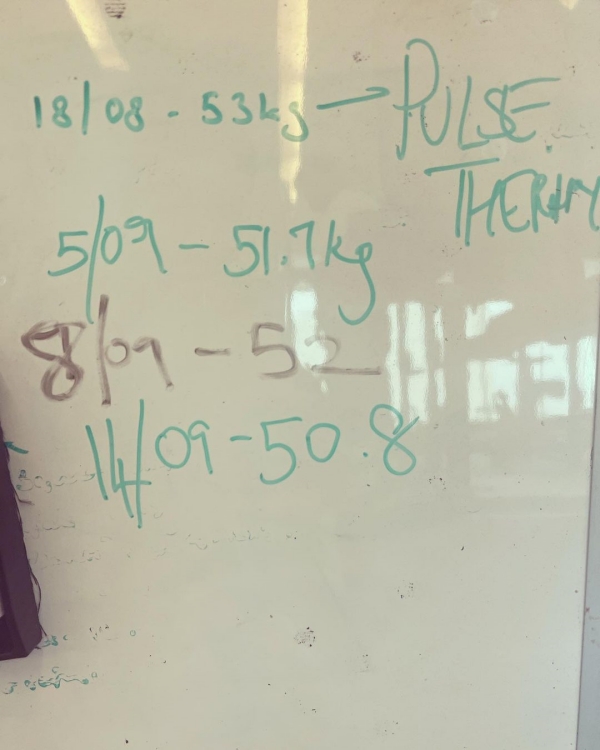 18/08 - 53kg → PULSE
THERAPY
5/09 - 51.7kg
8/09 - 52
14/09 - 50.8